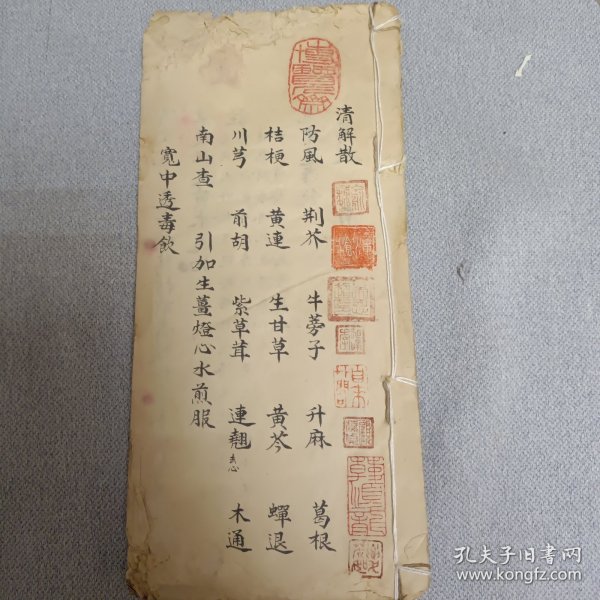 清解散
防風 荆芥 牛蒡子 升麻 葛根
桔梗 黄連 生甘草 黄芩 蟬退
川芎 前胡 紫草茸 連翹去心 木通
南山查 引加生薑燈心水煎服
寬中透毒飲
孔夫子旧书网
www.kongfz.com